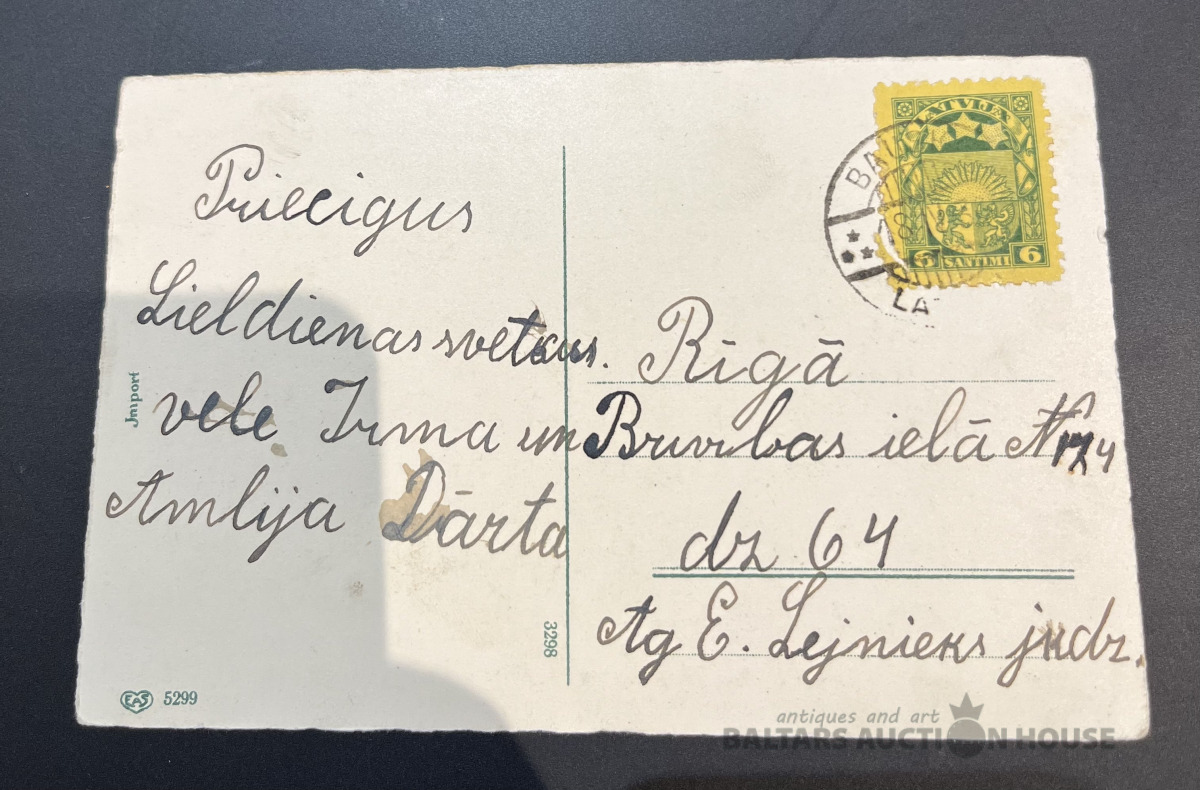 Priecigus
Lieldienas svetkus.
vele Irma un
Amlija Dārta
Rīgā
Brivibas ielā №
dz 64
Ag E. Lejnieks jkdz.
LATVIJA
6 SANTIMI 6
BAL
LA
Import
3298
EAS 5299
antiques and art
BALTARS AUCTION HOUSE